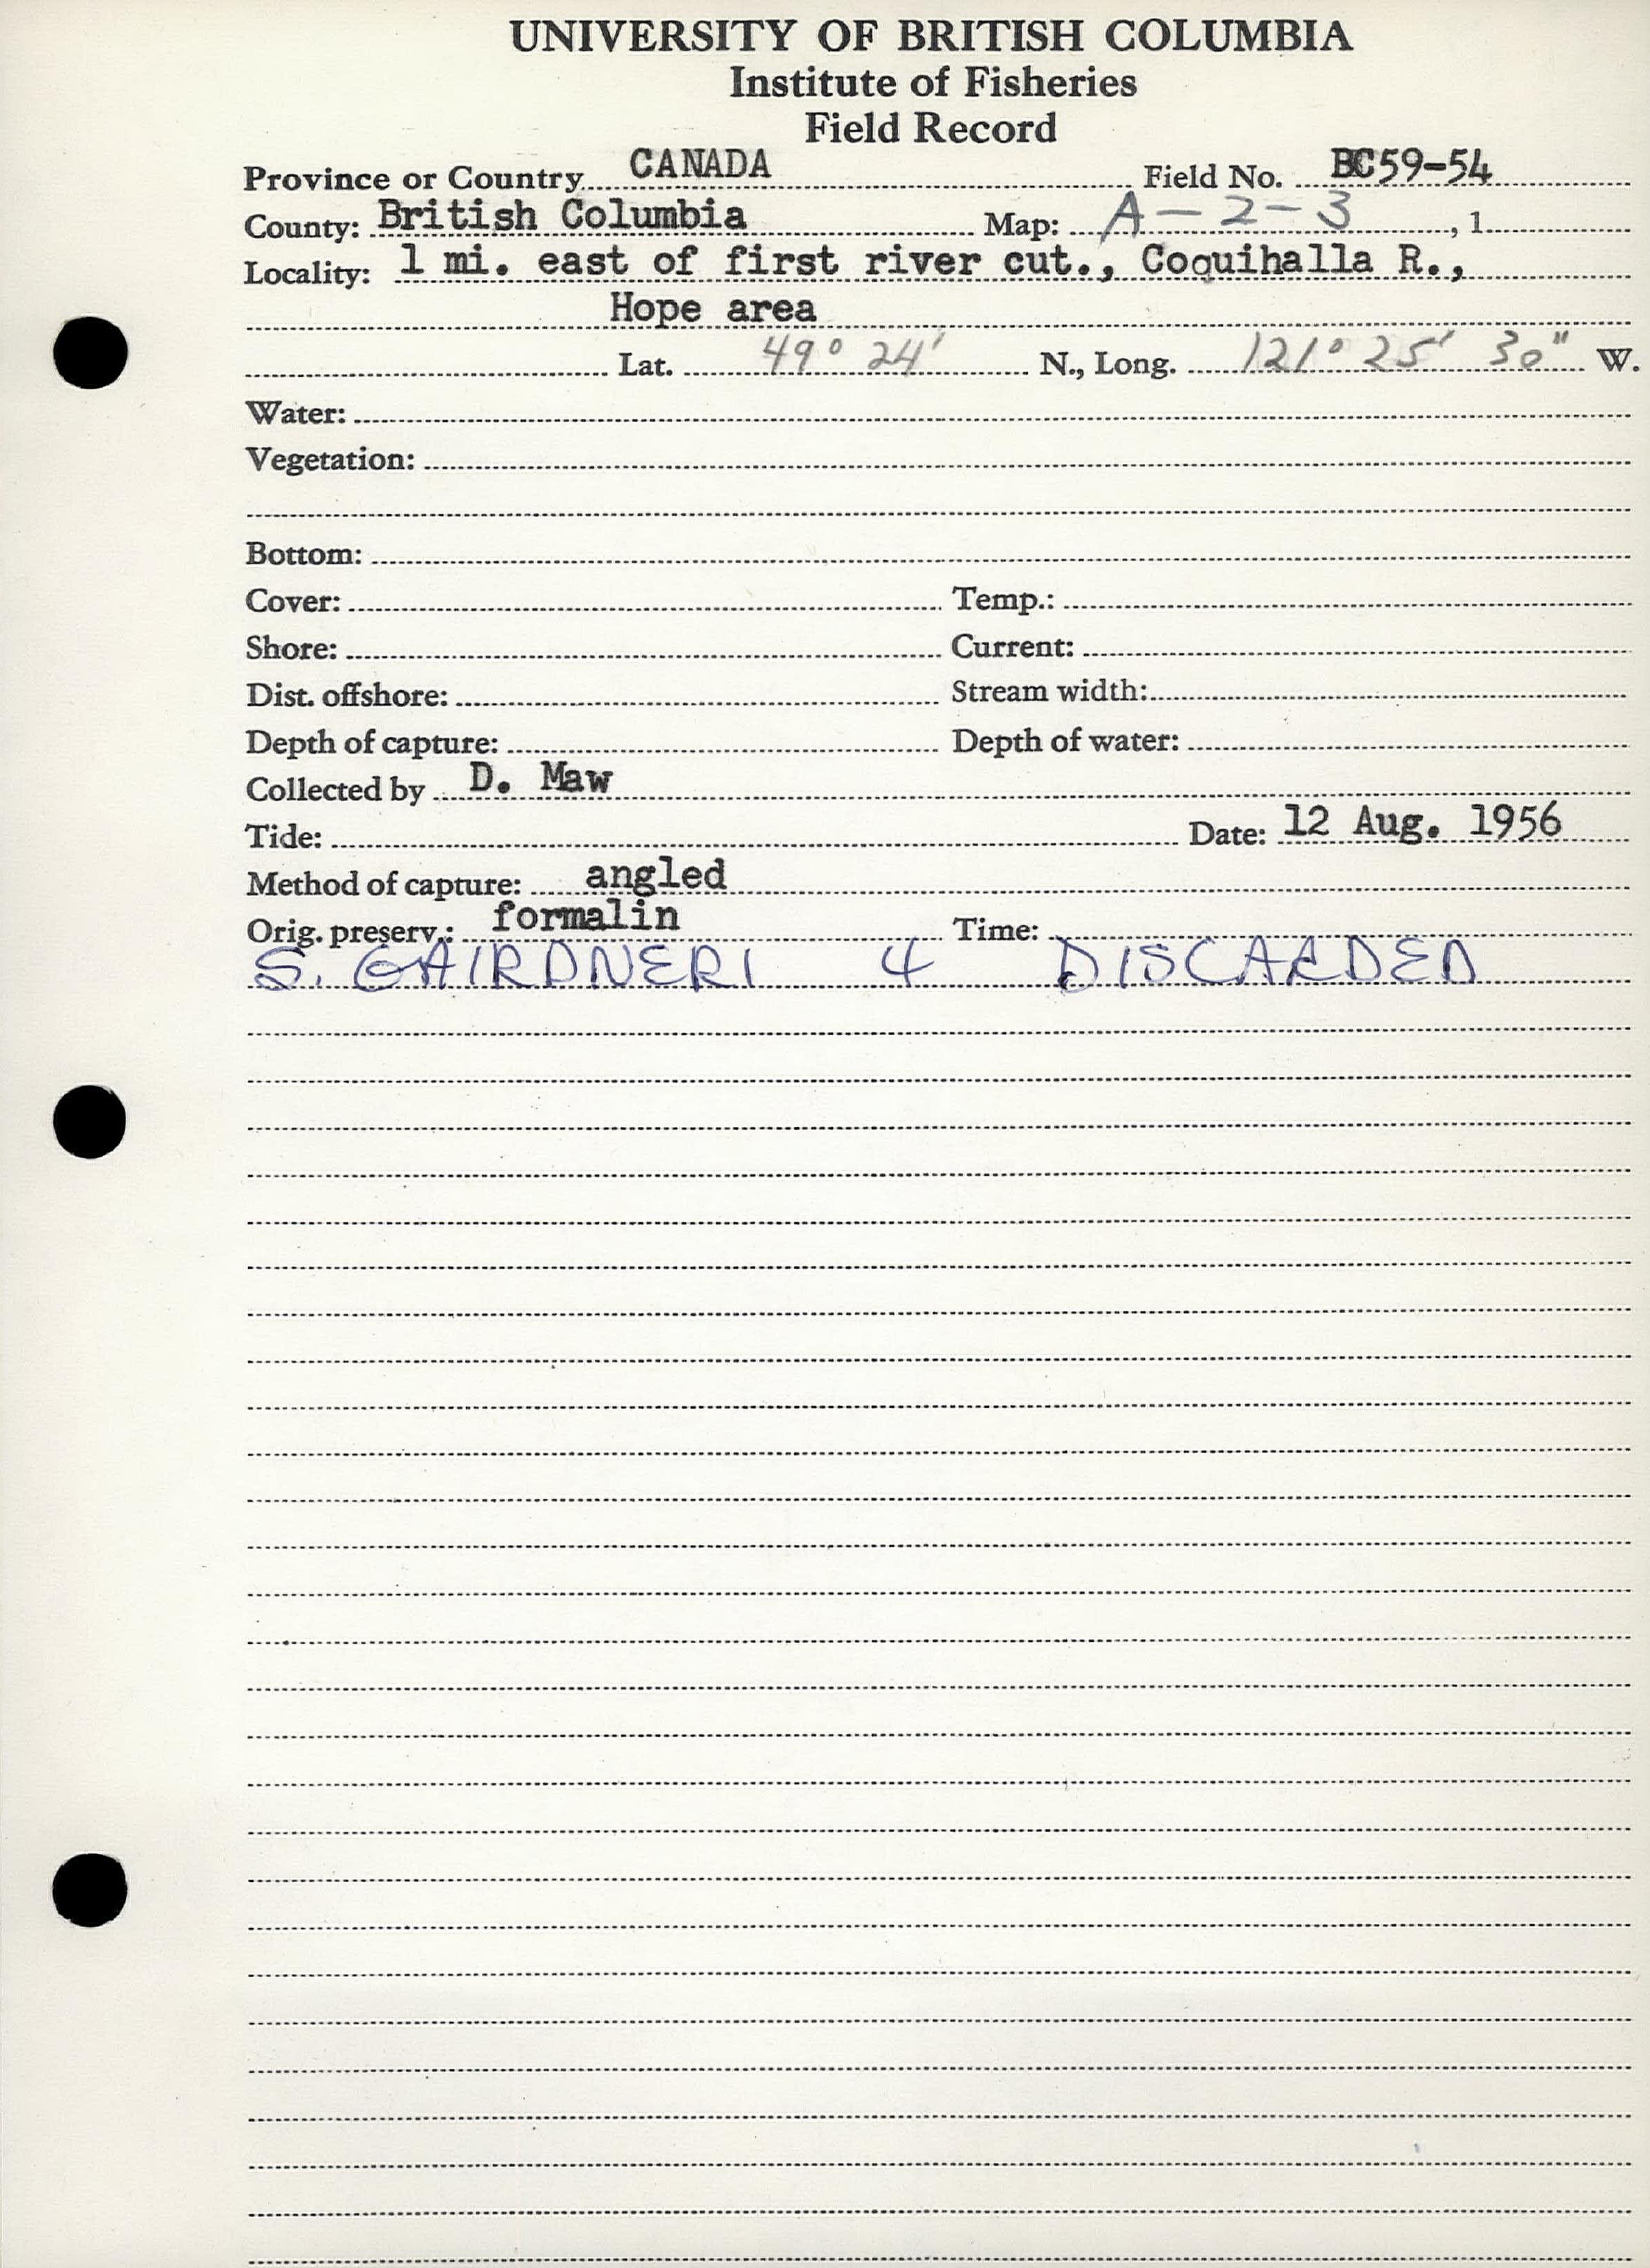 UNIVERSITY OF BRITISH COLUMBIA
Institute of Fisheries
Field Record
Province or Country CANADA Field No. BC59-54
County: British Columbia Map: A-2-3 , 1
Locality: 1 mi. east of first river cut., Coquihalla R.,
Hope area
Lat. 49° 24' N., Long. 121° 25' 30" W.
Water:
Vegetation:
Bottom:
Cover: Temp.:
Shore: Current:
Dist. offshore: Stream width:
Depth of capture: Depth of water:
Collected by D. Maw
Tide: Date: 12 Aug. 1956
Method of capture: angled
Orig. preserv.: formalin Time:
S. GAIRDNERI 4 DISCARDED